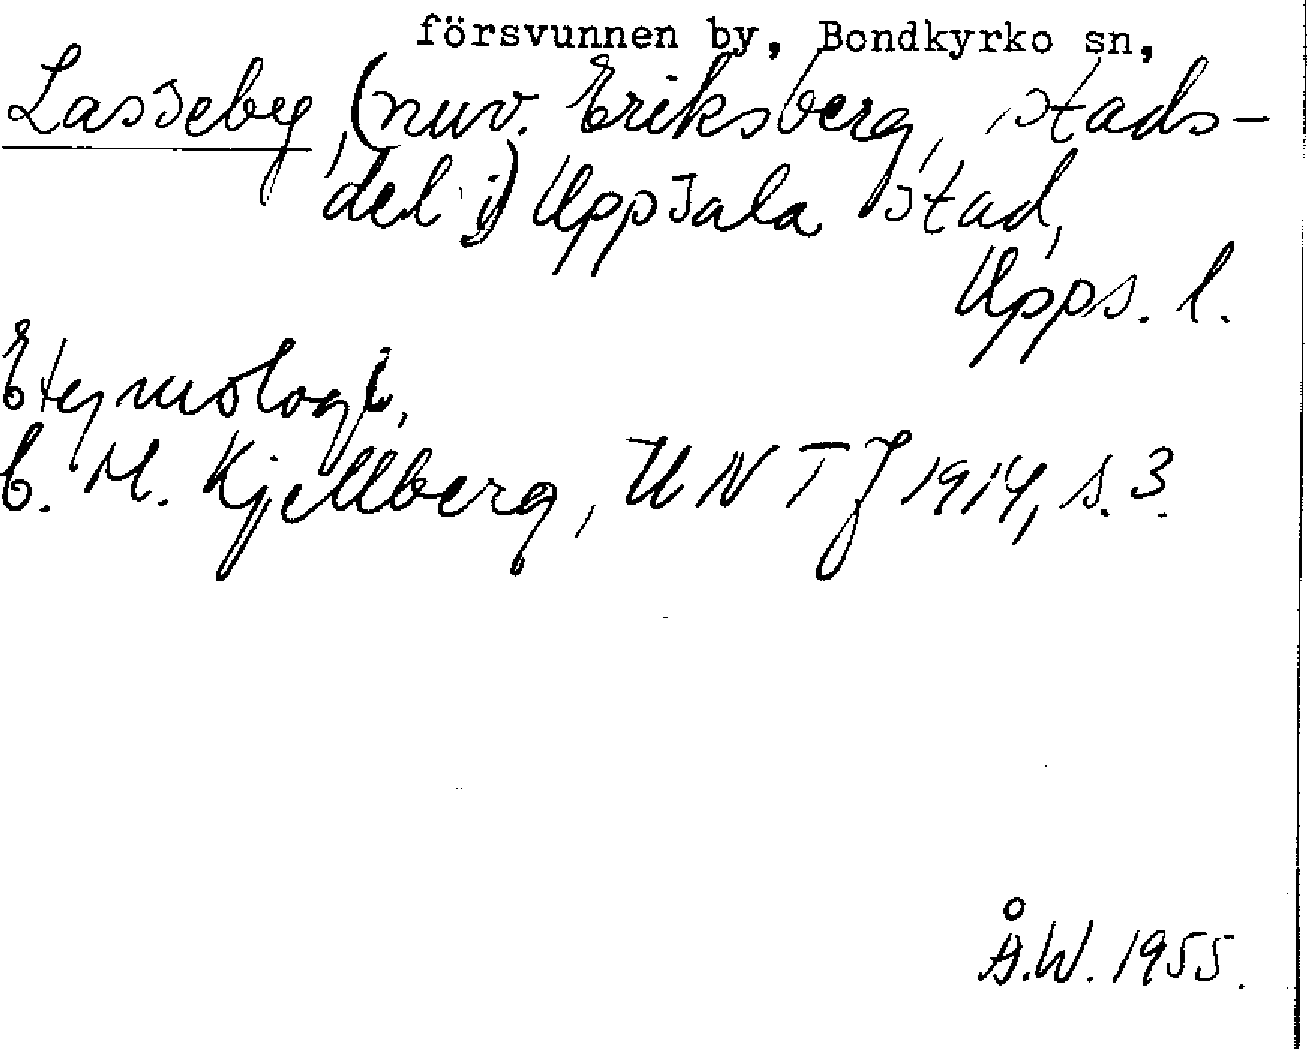 försvunnen by, Bondkyrko sn,
Lasseby, (nuv. Eriksberg, stads-
del i) Uppsala stad,
Upps. l.
Etymologi,
C. M. Kjellberg, UNTJ 1914, s. 3.
Å.W. 1955.